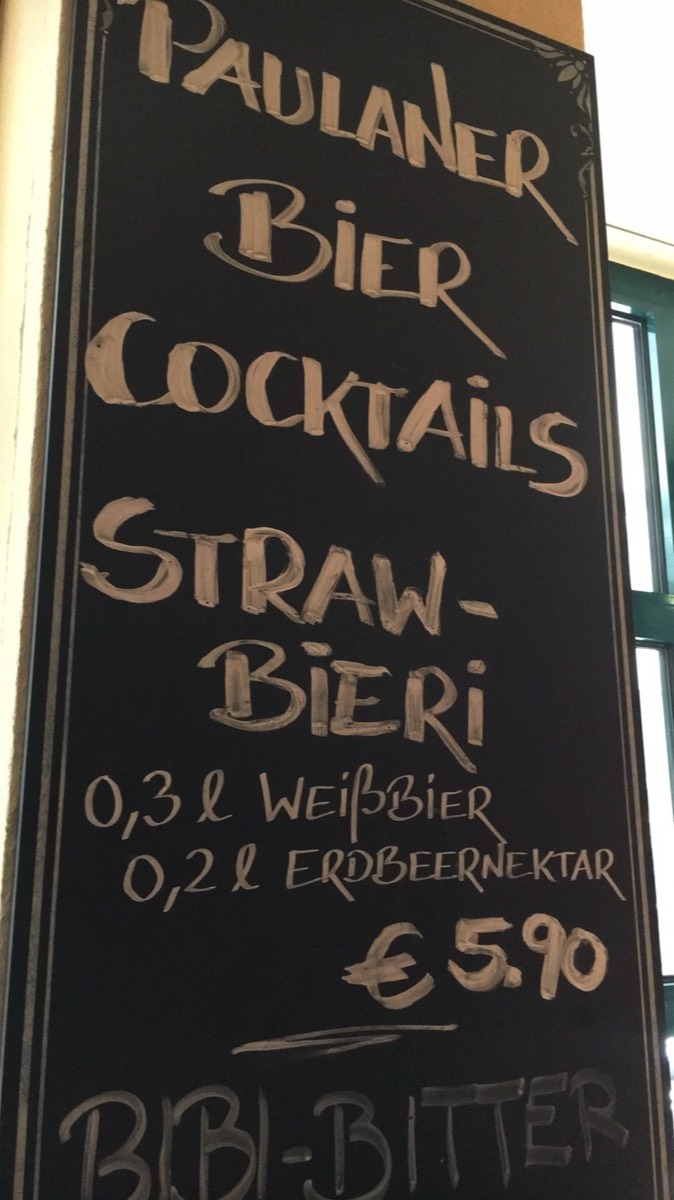 PAULANER
BiER
COCKTAiLS
STRAW-
BiERi
0,3 l WEißBiER
0,2 l ERDBEERNEKTAR
€ 5.90
BIBI-BITTER